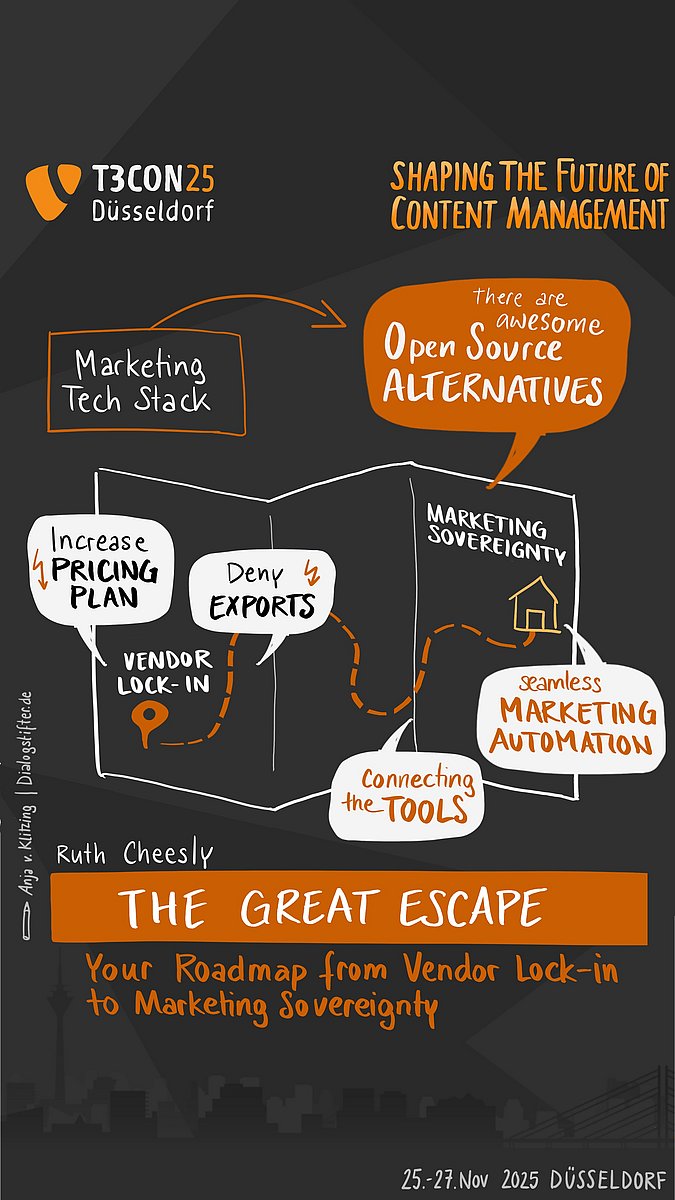 T3CON25
Düsseldorf
SHAPING THE FUTURE OF
CONTENT MANAGEMENT
Marketing
Tech Stack
there are
awesome
Open Source
ALTERNATIVES
MARKETING
SOVEREIGNTY
Increase
PRICING
PLAN
Deny
EXPORTS
VENDOR
LOCK-IN
seamless
MARKETING
AUTOMATION
connecting
the TOOLS
Anja v. Klitzing | Dialogstifter.de
Ruth Cheesly
THE GREAT ESCAPE
Your Roadmap from Vendor Lock-in
to Marketing Sovereignty
25.-27.Nov 2025 DÜSSELDORF